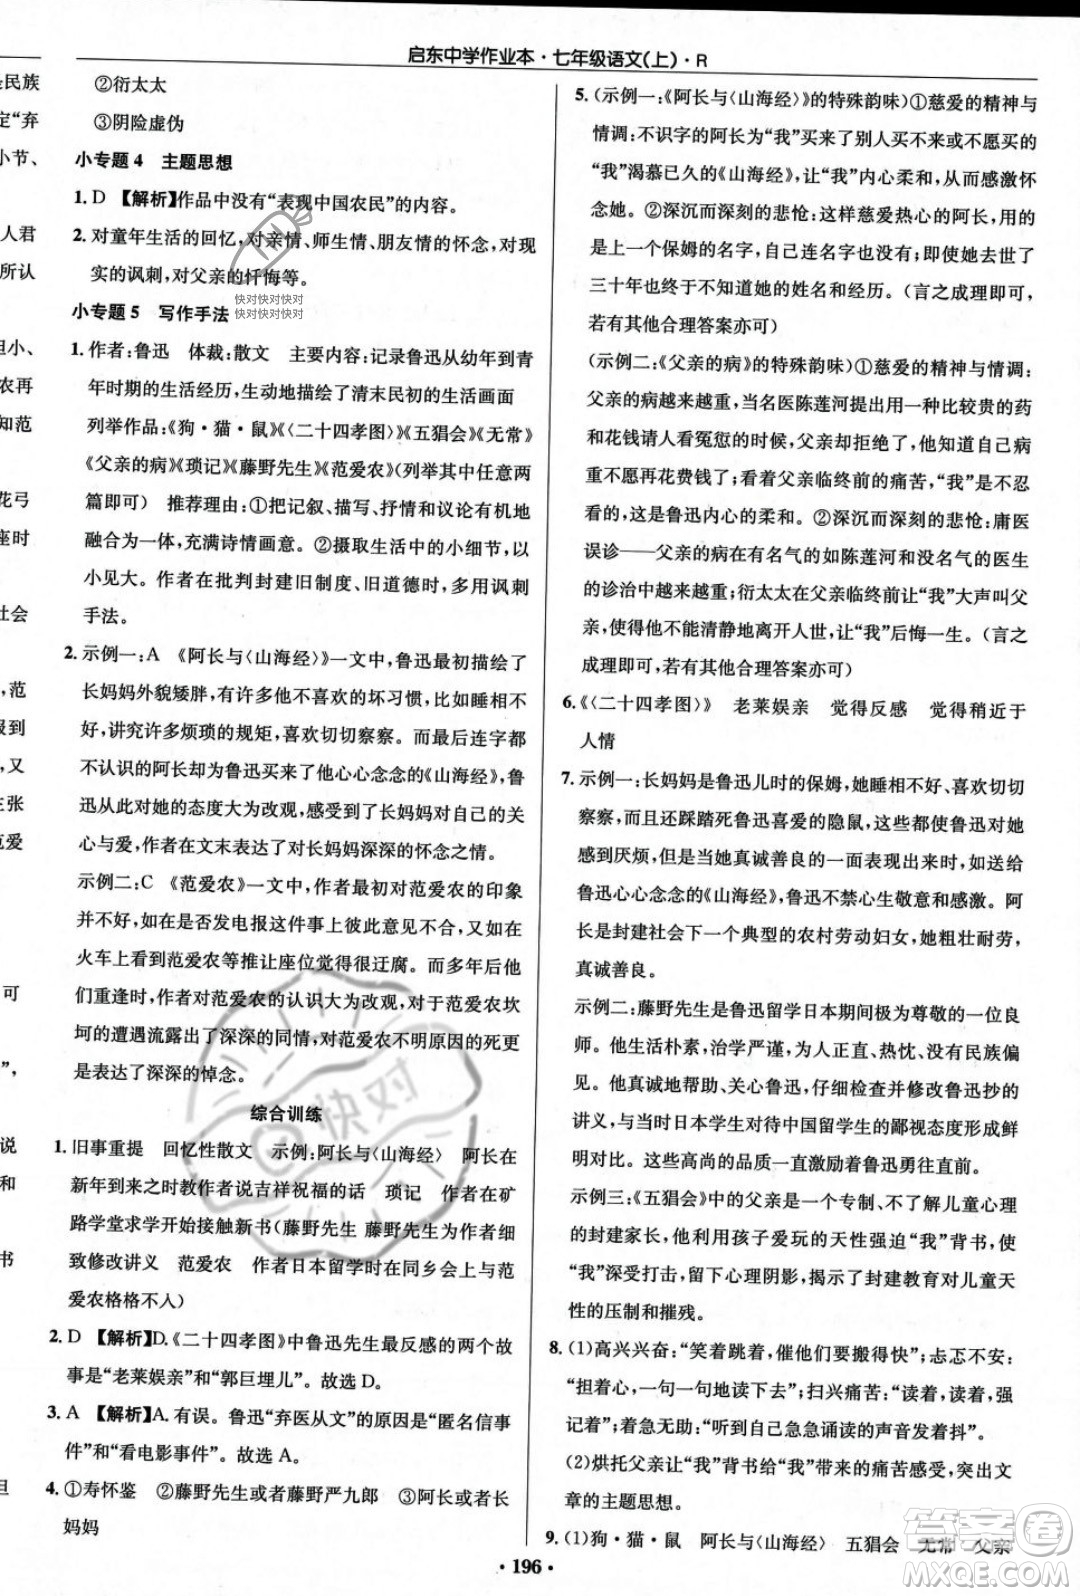 启东中学作业本·七年级语文(上)·R
是民族
定“弃
小节、
人君
所认
胆小、
农再
知范
花弓
座时
社会
,范
报到
,又
主张
范爱
可
”,
说
和
书
但
②衍太太
③阴险虚伪
小专题4 主题思想
1. D 【解析】作品中没有“表现中国农民”的内容。
2. 对童年生活的回忆,对亲情、师生情、朋友情的怀念,对现
实的讽刺,对父亲的忏悔等。
快对快对快对
快对快对快对
小专题5 写作手法
1. 作者:鲁迅 体裁:散文 主要内容:记录鲁迅从幼年到青
年时期的生活经历,生动地描绘了清末民初的生活画面
列举作品:《狗·猫·鼠》《〈二十四孝图〉》《五猖会》《无常》
《父亲的病》《琐记》《藤野先生》《范爱农》(列举其中任意两
篇即可) 推荐理由:①把记叙、描写、抒情和议论有机地
融合为一体,充满诗情画意。②摄取生活中的小细节,以
小见大。作者在批判封建旧制度、旧道德时,多用讽刺
手法。
2. 示例一:A 《阿长与〈山海经〉》一文中,鲁迅最初描绘了
长妈妈外貌矮胖,有许多不喜欢的坏习惯,比如睡相不
好,讲究许多烦琐的规矩,喜欢切切察察。最后连字都
不认识的阿长为鲁迅买来了他心心念念的《山海经》,鲁
迅从此对她的态度大为改观,感受到了长妈妈对自己的
关爱,作者在文末表达了对长妈妈深深的怀念之情。
示例二:C 《范爱农》一文中,作者最初对范爱农的印象
并不好,如在是否发电报这件事上彼此意见不合,以及在
火车上看到范爱农等推让座位觉得很迂腐。而多年后他
们重逢时,作者对范爱农的认识大为改观,对于范爱农坎
坷的遭遇流露出了深深的同情,对范爱农不明原因的死更
是表达了深深的悼念。
综合训练
1. 旧事重提 回忆性散文 示例:阿长与〈山海经〉 阿长在
新年时教作者说吉祥祝福的话 琐记 作者在矿
路学堂求学开始接触新书(藤野先生 藤野先生仔
细致修改讲义 范爱农 作者日本留学时在同乡会上与范
爱农格格不入)
2. D 【解析】D.《二十四孝图》中鲁迅先生最反感的两个故
事是“老莱娱亲”和“郭巨埋儿”。故选D。
3. A 【解析】A. 有误。鲁迅“弃医从文”的原因是“匿名信事
件”和“看电影事件”。故选A。
4. ①寿怀鉴 ②藤野先生或者藤野严九郎 ③阿长或长
妈妈
5. (示例一:《阿长与〈山海经〉》的特殊韵味)①慈爱的精神与
情调:不识字的阿长为“我”买来了别人买不来或不肯买
的、“我”渴慕已久的《山海经》,让“我”内心柔和,从而感激怀
念她。②深沉而深刻的悲怆:这样慈爱热心的阿长,有的
只是一个保姆的称呼,自己连名字也没有;即使“我”过了
三十年也终于不知道她的姓名和经历。(言之成理即可,
若有其他合理答案亦可)
(示例二:《父亲的病》的特殊韵味)①慈爱的精神与情调:
父亲的病越来越重,当名医陈莲河用一种比较贵的药
和花钱请人看冤愆的时候,父亲却拒绝了,他知道自己病
重不愿再花费钱了;看着父亲临终前的痛苦,“我”是不忍
看的,这是鲁迅内心的柔和。②深沉而深刻的悲怆:庸医
误诊——父亲的病在有名气的如陈莲河和没名气的医生
的诊治中越来越重;衍太太在父亲临终前让“我”大声叫父
亲,父亲不能清静地离开人世,让“我”后悔一生。(言之
成理即可,若有其他合理答案亦可)
6.《〈二十四孝图〉》 老莱娱亲 觉得反感 觉得稍近于
人情
7. 示例一:长妈妈是鲁迅儿时的保姆,她睡相不好、喜欢切切
察察,而且还踩踏死鲁迅喜爱的隐鼠,这些都使鲁迅对她
感到厌烦,但是当她真诚善良的一面表现出来时,如送给
鲁迅心心念念的《山海经》,鲁迅不禁心生敬意和感激。阿
长是封建社会下一个典型的农村劳动妇女,她粗壮耐劳、
真诚善良。
示例二:藤野先生是鲁迅留学日本期间极为尊敬的一位良
师。他生活朴素,治学严谨,为人正直、热忱,没有民族偏
见。他真诚地帮助、关心鲁迅,仔细检查并修改鲁迅抄的
讲义,与当时日本学生对中国留学生的鄙视态度形成鲜
明对比。这些高尚的品质一直激励着鲁迅勇往直前。
示例三:《五猖会》中的父亲是一个专制、不了解儿童心理
的封建家长,他不顾孩子爱玩的天性强迫“我”背书,使
“我”深受打击,留下心理阴影,揭示了封建教育对儿童天
性的压制和摧残。
8. (1)高兴兴奋:“笑着跳着,催他们要搬得快”;忐忑不安:
“担着心,一句一句地读下去”;扫兴痛苦:“读着,读着,强
记着”;着急无助:“听到自己急急诵读的声音发着抖”。
(2)烘托父亲让“我”背书给“我”带来的痛苦感受,突出文
章的主题思想。
9. (1)狗·猫·鼠 阿长与〈山海经〉 五猖会 无常 父亲
· 196 ·
快对
答案圈
MXQE.COM